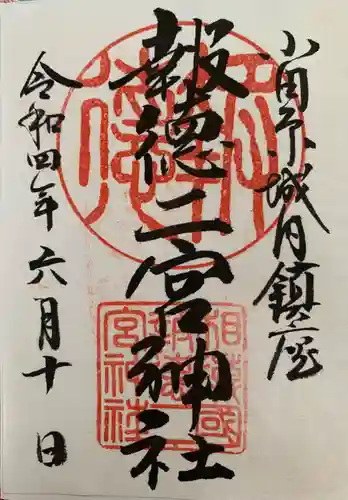 小田原城内鎮座
報徳二宮神社
令和四年六月十日
相模國
報徳二
宮神社